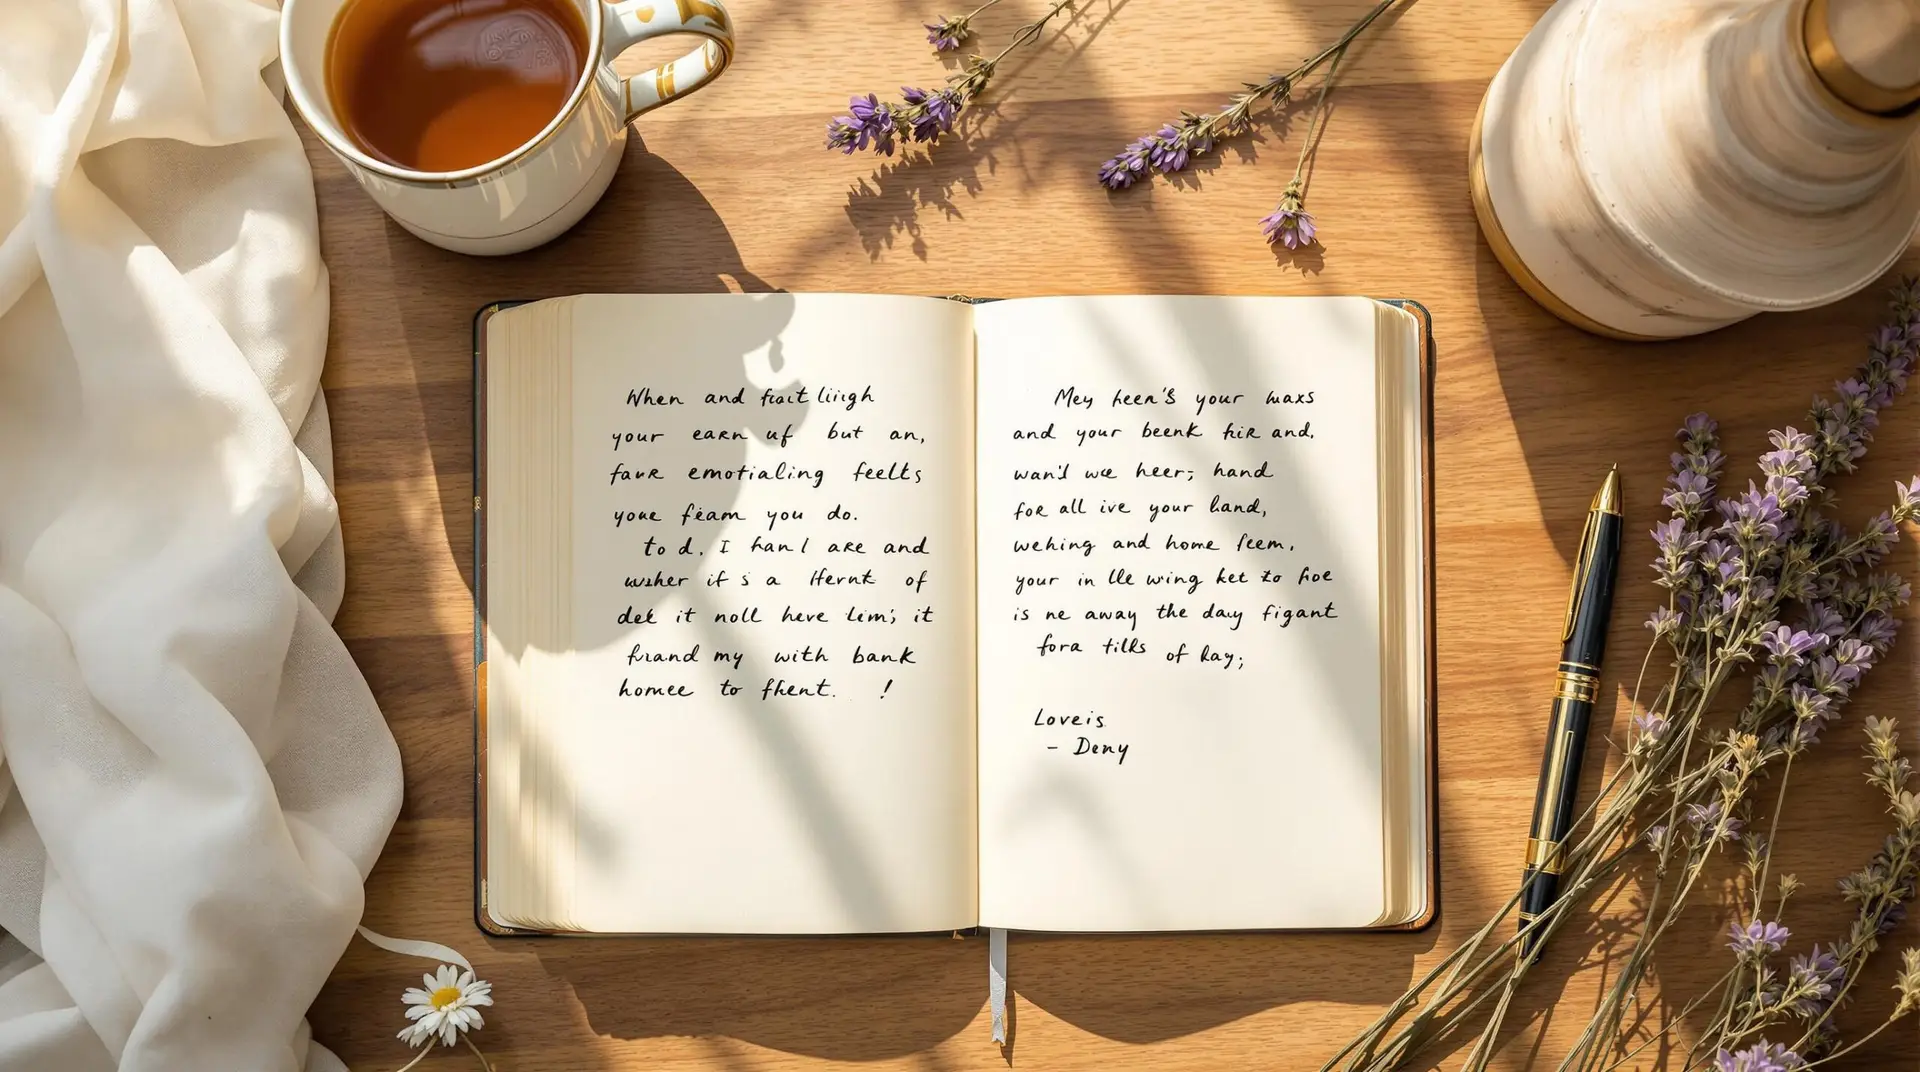 When and fract liingh
your earn uf but an,
favr emotialing feelts
youe fieam you do.
to d. I han l are and
wuher if s a lfernt of
dek it noll heve lim; it
frand my with bank
homee to fhent. !
Mey heen's your waxs
and your beenk hir and,
wan'd we heer; hand
for all ive your hand,
wehing and home feem,
your in lle wring ket to foe
is ne away the day figant
fora tilks of lay;
Loveis
- Deny